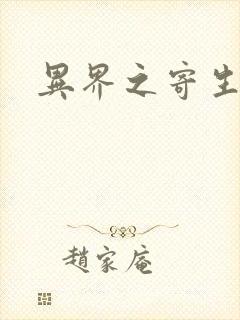 異界之寄生
趙家庵